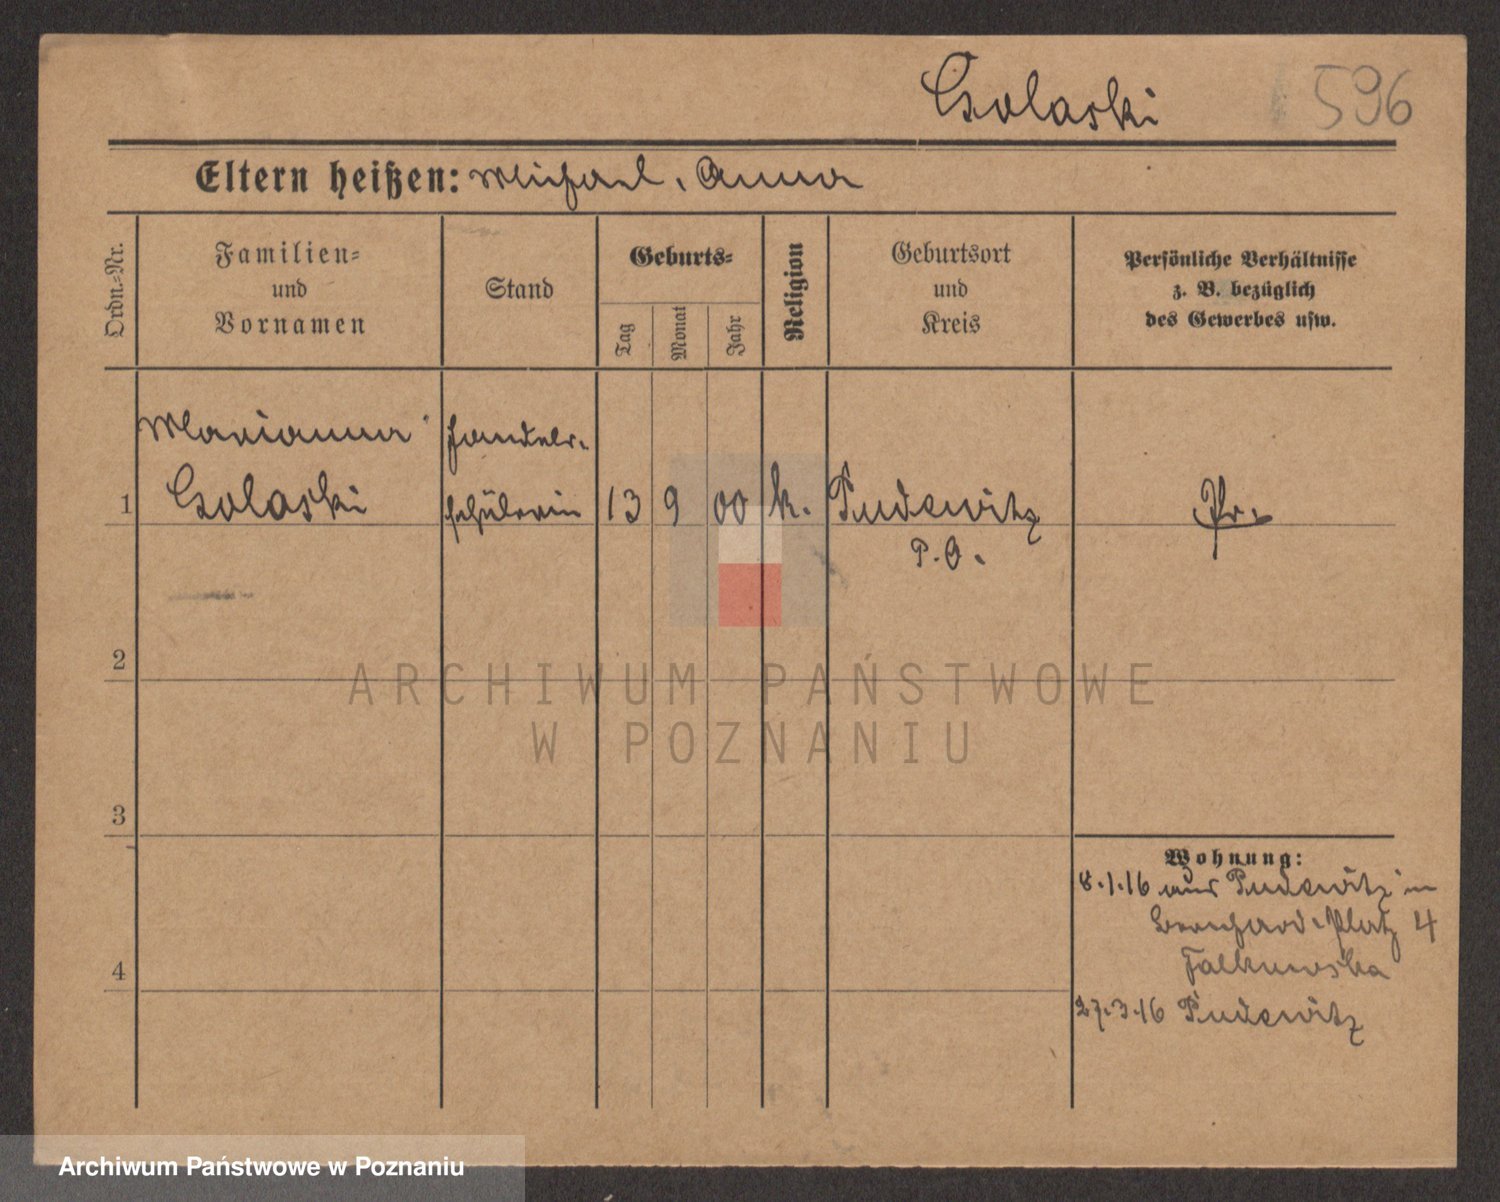 Golaski 596
Eltern heißen: Michael. Anna
Ordn.-Nr.
Familien-
und
Vornamen
Stand
Geburts-
Tag
Monat
Jahr
Religion
Geburtsort
und
Kreis
Persönliche Verhältnisse
z. B. bezüglich
des Gewerbes usw.
Marianna Handels-
1 Golaski schülerin 13 9 00 k. Pudewitz Pr.
P.O.
2
ARCHIWUM PAŃSTWOWE
W POZNANIU
3
Wohnung:
8.1.16 aus Pudewitz in
Bernhard-Platz 4
Falkowska
4
27.3.16 Pudewitz
Archiwum Państwowe w Poznaniu